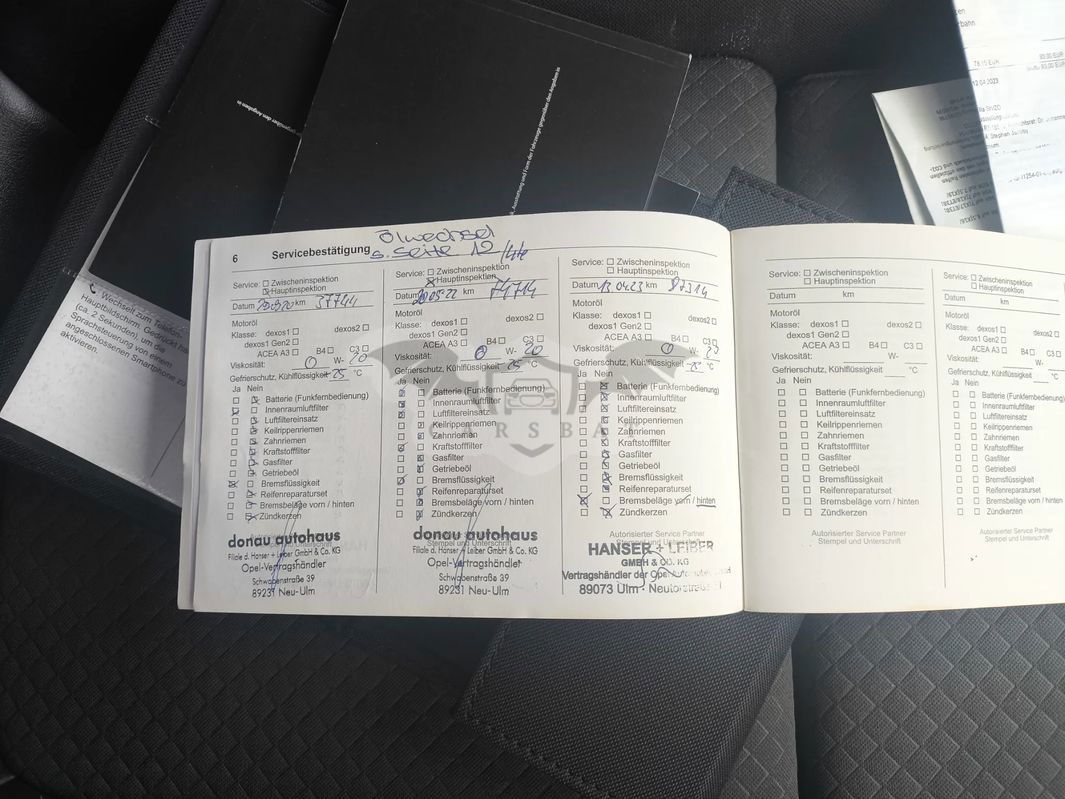 Wechselt zum Telefon
Hauptbildschirm. Gedrückt
(ca. 2 Sekunden), um die
Sprachsteuerung von einem
angeschlossenen Smartphone zu
aktivieren.
12.04.2023
6 Servicebestätigung
Ölwechsel
s. Seite 12
Service: Zwischeninspektion
Hauptinspektion
Datum km 37744
Motoröl
Klasse: dexos1 dexos2
dexos1 Gen2
ACEA A3 B4 C3
Viskosität: 0 W- 20
Gefrierschutz, Kühlflüssigkeit -25 °C
Ja Nein
Batterie (Funkfernbedienung)
Innenraumluftfilter
Luftfiltereinsatz
Keilrippenriemen
Zahnriemen
Kraftstofffilter
Gasfilter
Getriebeöl
Bremsflüssigkeit
Reifenreparaturset
Bremsbeläge vorn / hinten
Zündkerzen
donau autohaus
Filiale d. Hanser + Leiber GmbH & Co. KG
Opel-Vertragshändler
Schwabenstraße 39
89231 Neu-Ulm
Service: Zwischeninspektion
Hauptinspektion
Datum 20.05.22 km 74714
Motoröl
Klasse: dexos1 dexos2
dexos1 Gen2
ACEA A3 B4 C3
Viskosität: 0 W- 20
Gefrierschutz, Kühlflüssigkeit -25 °C
Ja Nein
Batterie (Funkfernbedienung)
Innenraumluftfilter
Luftfiltereinsatz
Keilrippenriemen
Zahnriemen
Kraftstofffilter
Gasfilter
Getriebeöl
Bremsflüssigkeit
Reifenreparaturset
Bremsbeläge vorn / hinten
Zündkerzen
donau autohaus
Stempel und Unterschrift
Filiale d. Hanser + Leiber GmbH & Co. KG
Opel-Vertragshändler
Schwabenstraße 39
89231 Neu-Ulm
Service: Zwischeninspektion
Hauptinspektion
Datum 13.04.23 km 87314
Motoröl
Klasse: dexos1 dexos2
dexos1 Gen2
ACEA A3 B4 C3
Viskosität: 0 W-
Gefrierschutz, Kühlflüssigkeit °C
Ja Nein
Batterie (Funkfernbedienung)
Innenraumluftfilter
Luftfiltereinsatz
Keilrippenriemen
Zahnriemen
Kraftstofffilter
Gasfilter
Getriebeöl
Bremsflüssigkeit
Reifenreparaturset
Bremsbeläge vorn / hinten
Zündkerzen
Autorisierter Service Partner
Stempel und Unterschrift
HANSER + LEIBER
GMBH & CO. KG
Vertragshändler der Opel
89073 Ulm
Service: Zwischeninspektion
Hauptinspektion
Datum km
Motoröl
Klasse: dexos1 dexos2
dexos1 Gen2
ACEA A3 B4 C3
Viskosität: W-
Gefrierschutz, Kühlflüssigkeit °C
Ja Nein
Batterie (Funkfernbedienung)
Innenraumluftfilter
Luftfiltereinsatz
Keilrippenriemen
Zahnriemen
Kraftstofffilter
Gasfilter
Getriebeöl
Bremsflüssigkeit
Reifenreparaturset
Bremsbeläge vorn / hinten
Zündkerzen
Autorisierter Service Partner
Stempel und Unterschrift
Service: Zwischeninspektion
Hauptinspektion
Datum km
Motoröl
Klasse: dexos1 dexos2
dexos1 Gen2
ACEA A3 B4 C3
Viskosität: W-
Gefrierschutz, Kühlflüssigkeit
Ja Nein
Batterie
Innenraumluftfilter
Luftfiltereinsatz
Keilrippenriemen
Zahnriemen
Kraftstofffilter
Gasfilter
Getriebeöl
Bremsflüssigkeit
Reifenreparaturset
Bremsbeläge vorn / hinten
Zündkerzen
Autorisierter Service Partner
Stempel und Unterschrift
CARSBAT